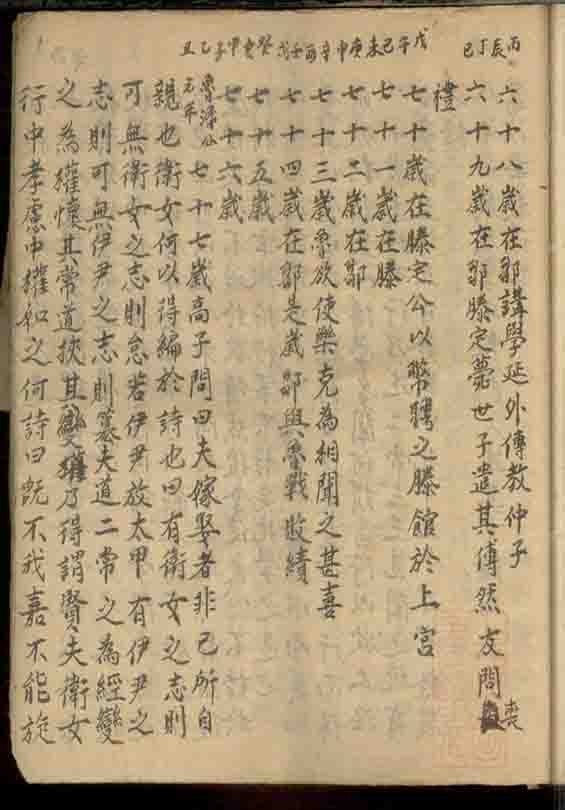 丙辰丁巳
戊午己未庚申辛酉壬戌癸亥甲子乙丑
六十八歲在鄒講學延外傅教仲子
六十九歲在鄒滕定薨世子遣其傅然友問喪
禮
七十歲在滕定公以幣聘之滕館於上宮
七十一歲在滕
七十二歲在鄒
七十三歲魯欲使樂克為相聞之甚喜
七十四歲在鄒是歲鄒與魯戰敗績
七十五歲
七十六歲
魯湣公
元年
七十七歲高子問曰夫嫁娶者非己所自
親也衛女何以得編於詩也曰有衛女之志則
可無衛女之志則怠若伊尹放太甲有伊尹之
志則可無伊尹之志則篡夫道二常之為經變
之為權懷其常道挾其變權乃得謂賢夫衛女
行中孝慮中權如之何詩曰既不我嘉不能旋